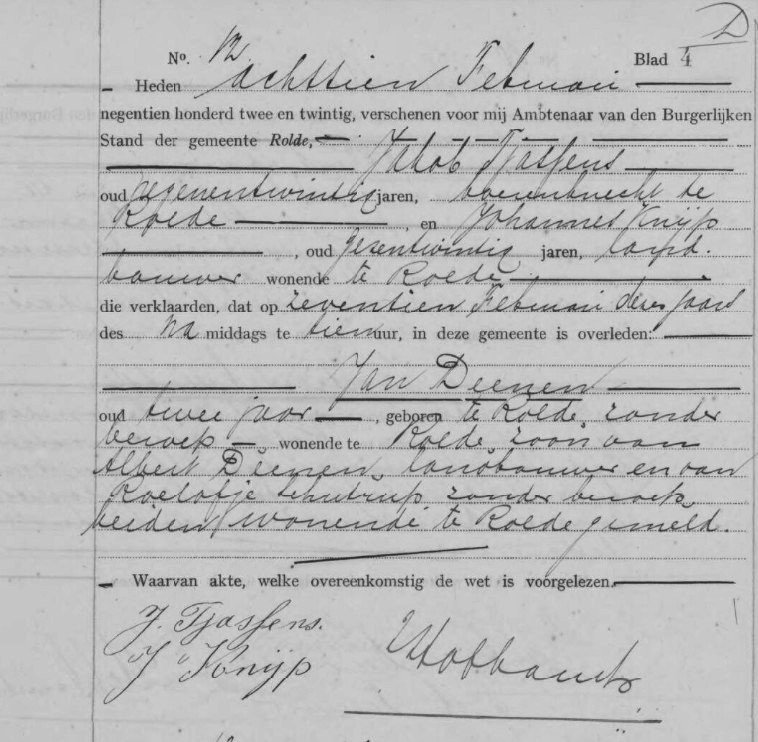 D
No. 12 Blad 4
Heden achttien Februari
negentien honderd twee en twintig, verschenen voor mij Ambtenaar van den Burgerlijken
Stand der gemeente Rolde,
Jakob Tjassens
oud negenentwintig jaren, boerenknecht te
Rolde , en Johannes Knijp
, oud zesentwintig jaren, land-
bouwer wonende te Rolde
die verklaarden, dat op zeventien Februari dezes jaars
des na middags te tien uur, in deze gemeente is overleden:
Jan Deenen
oud twee jaar , geboren te Rolde, zonder
beroep , wonende te Rolde, zoon van
Albert Deenen, landbouwer en van
Roelofje zonder beroep,
beiden wonende te Rolde gemeld.
Waarvan akte, welke overeenkomstig de wet is voorgelezen.
J. Tjassens.
J Knijp